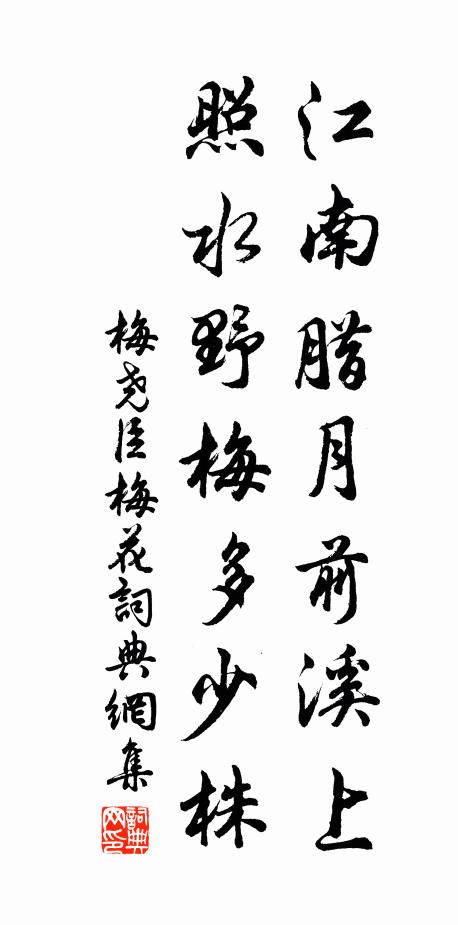 江南腊月前溪上
照水野梅多少株
梅尧臣梅花詞典網集
詞典网印